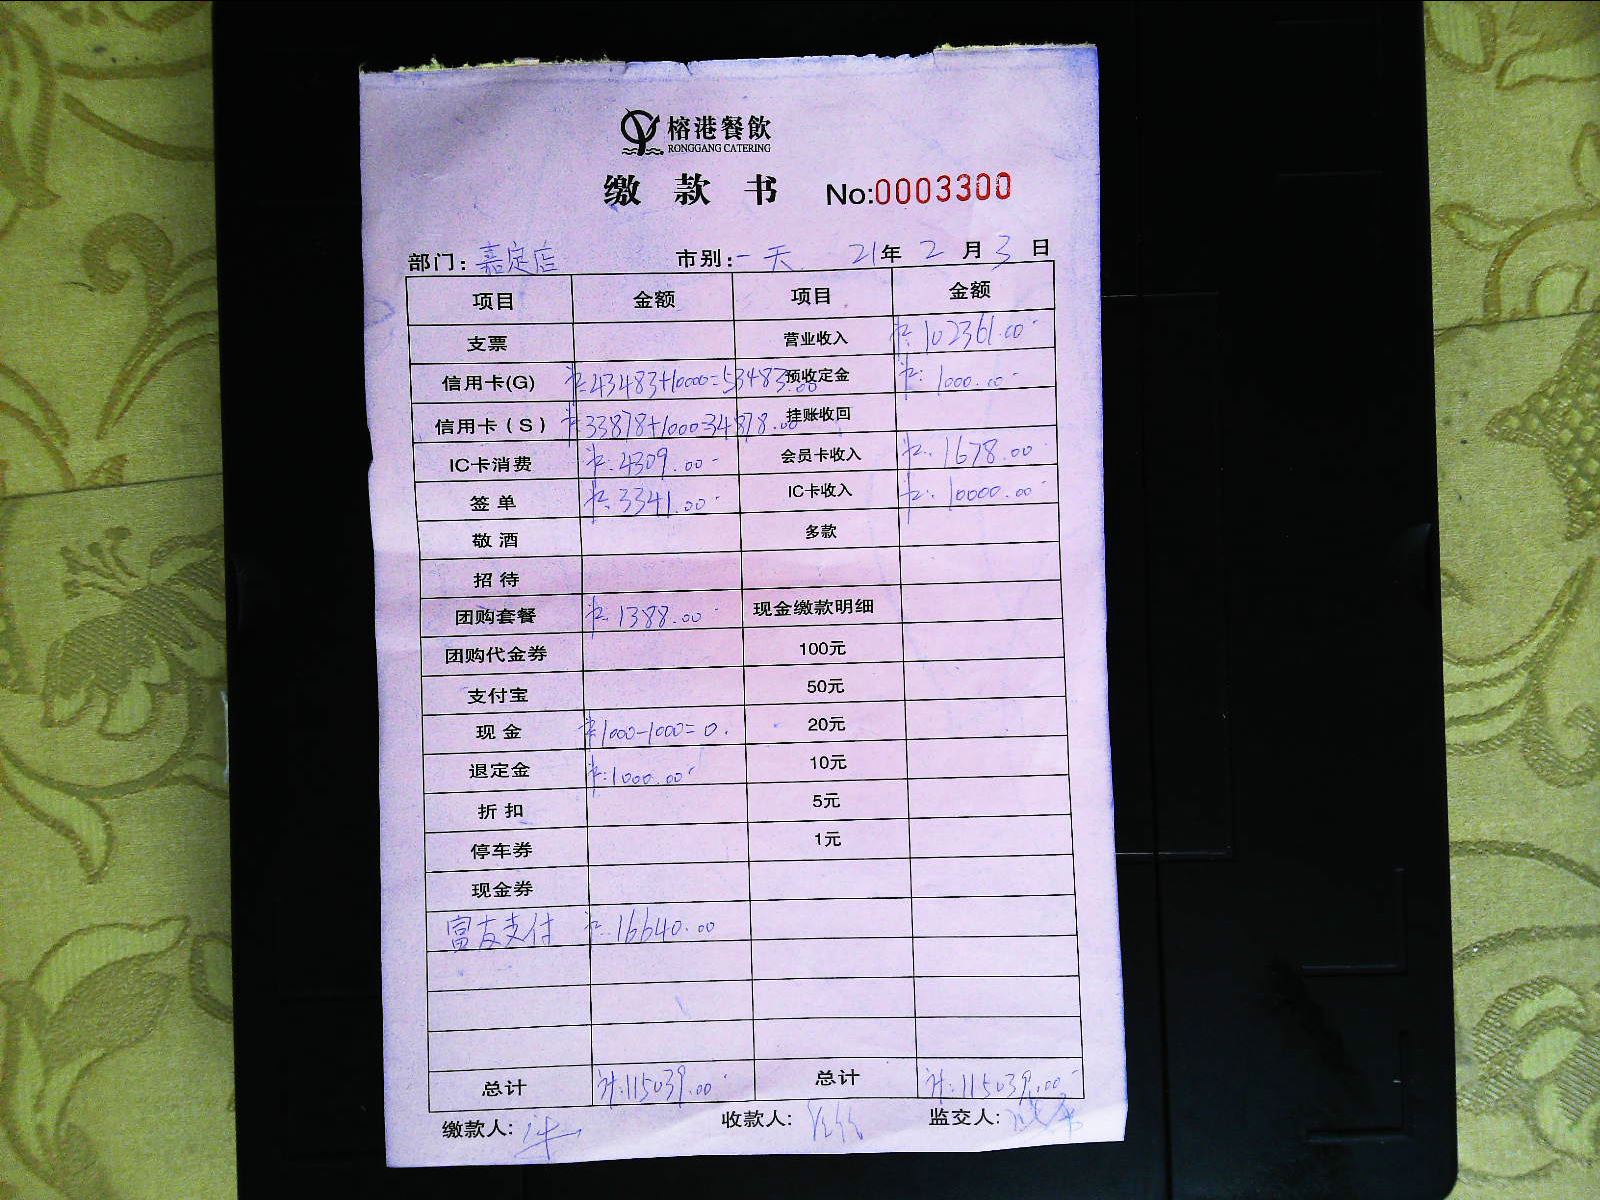 榕港餐飲
RONGGANG CATERING
缴款书 No:0003300
部门：嘉定店 市别：一天 21年2月3日
项目 金额 项目 金额
支票 营业收入 ¥:102361.00
信用卡(G) ¥:43483+10000=53483.00 预收定金 ¥:1000.00
信用卡(S) ¥:33878+1000=34878.00 挂账收回
IC卡消费 ¥:4309.00 会员卡收入 ¥:1678.00
签单 ¥:3341.00 IC卡收入 ¥:10000.00
敬酒 多款
招待
团购套餐 ¥:1388.00 现金缴款明细
团购代金券 100元
支付宝 50元
现金 ¥1000-1000=0. 20元
退定金 ¥:1000.00 10元
折扣 5元
停车券 1元
现金券
富友支付 ¥:16640.00
总计 计:115039.00 总计 计:115039.00
缴款人: 收款人: 监交人: